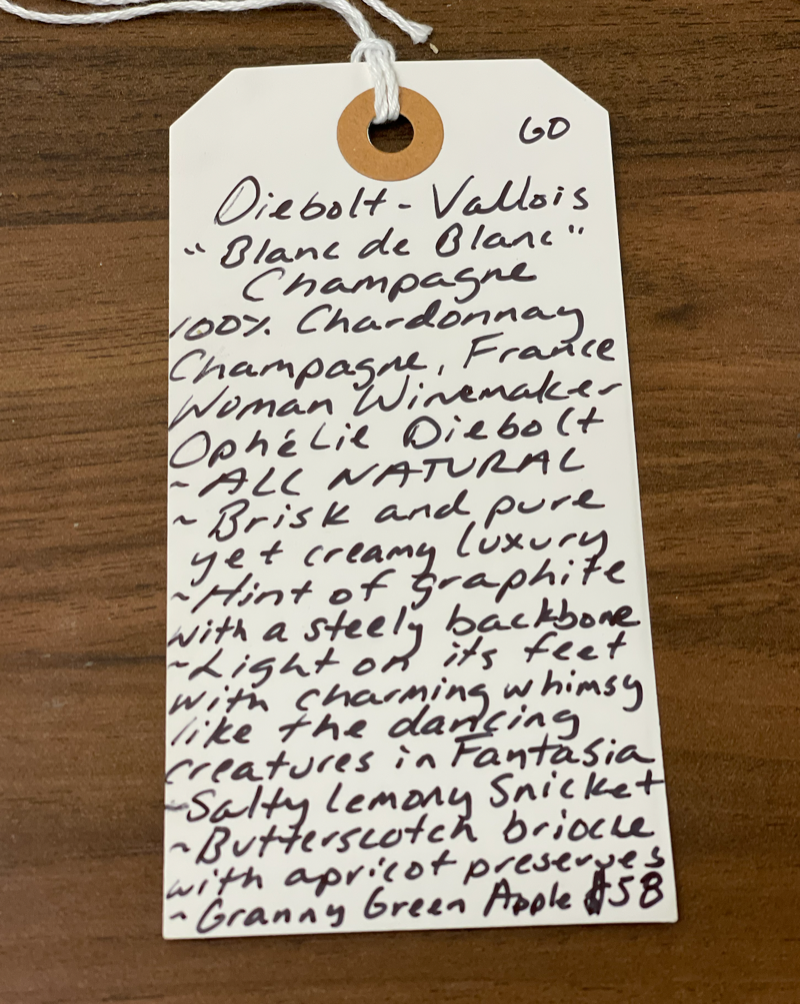 GO
Diebolt-Vallois
"Blanc de Blanc"
Champagne
100% Chardonnay
Champagne, France
Woman Winemaker
Ophélie Diebolt
~ALL NATURAL
~Brisk and pure
yet creamy luxury
~Hint of graphite
with a steely backbone
~Light on its feet
with charming whimsy
like the dancing
creatures in Fantasia
~Salty Lemony Snicket
~Butterscotch brioche
with apricot preserves
~Granny Green Apple $58